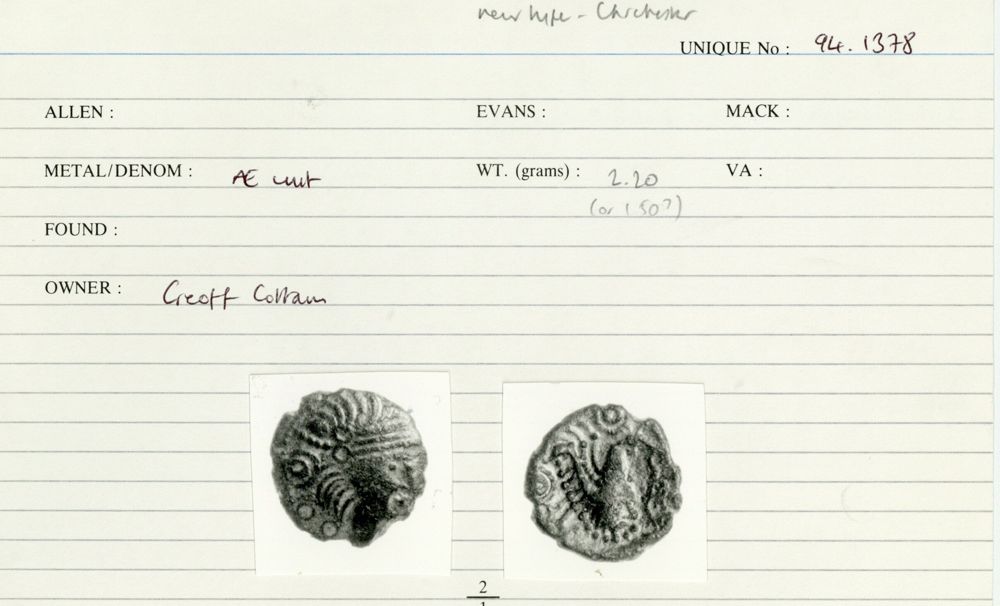 new type - Chichester
UNIQUE No : 94.1378
ALLEN : EVANS : MACK :
METAL/DENOM : Æ unit WT. (grams) : 2.20 VA :
(or 1.50?)
FOUND :
OWNER : Geoff Cottam
2
1